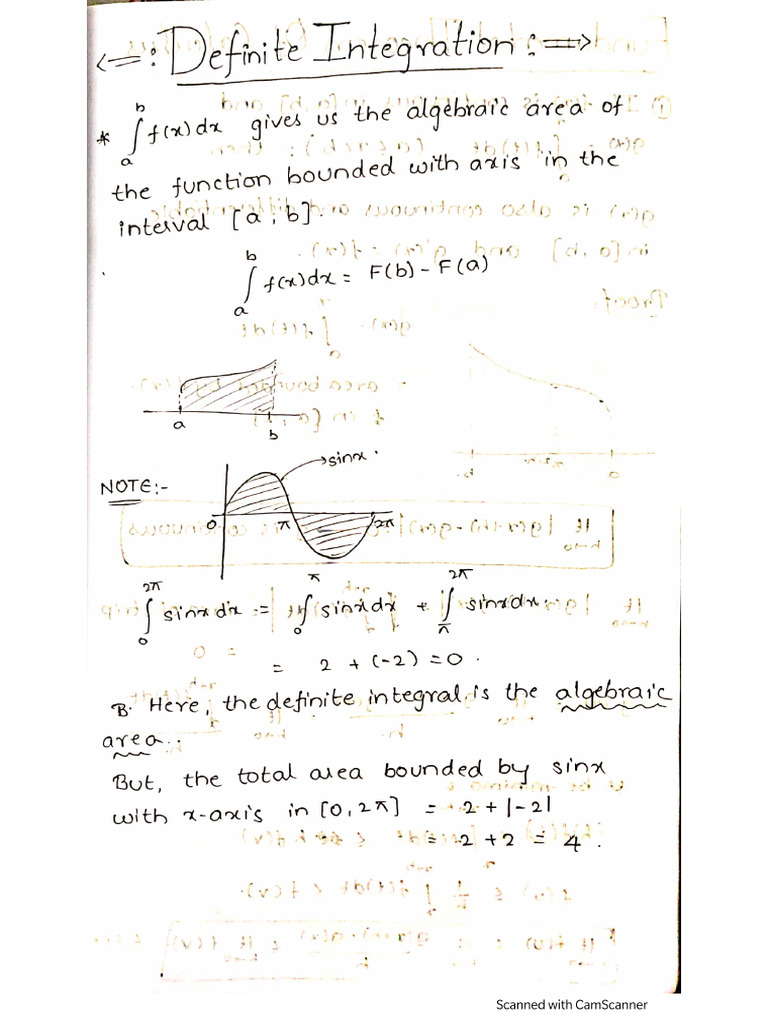 <=: Definite Integration :=>
* ∫_a^b f(x)dx gives us the algebraic area of
the function bounded with axis in the
interval [a, b].
∫_a^b f(x)dx = F(b) - F(a)
a
b
sinx.
NOTE:-
0 π 2π
∫_0^{2π} sinx dx = ∫_0^π sinx dx + ∫_π^{2π} sinx dx
= 2 + (-2) = 0.
Here, the definite integral is the algebraic
area.
But, the total area bounded by sinx
with x-axis in [0, 2π] = 2 + |-2|
= 2 + 2 = 4.
Scanned with CamScanner